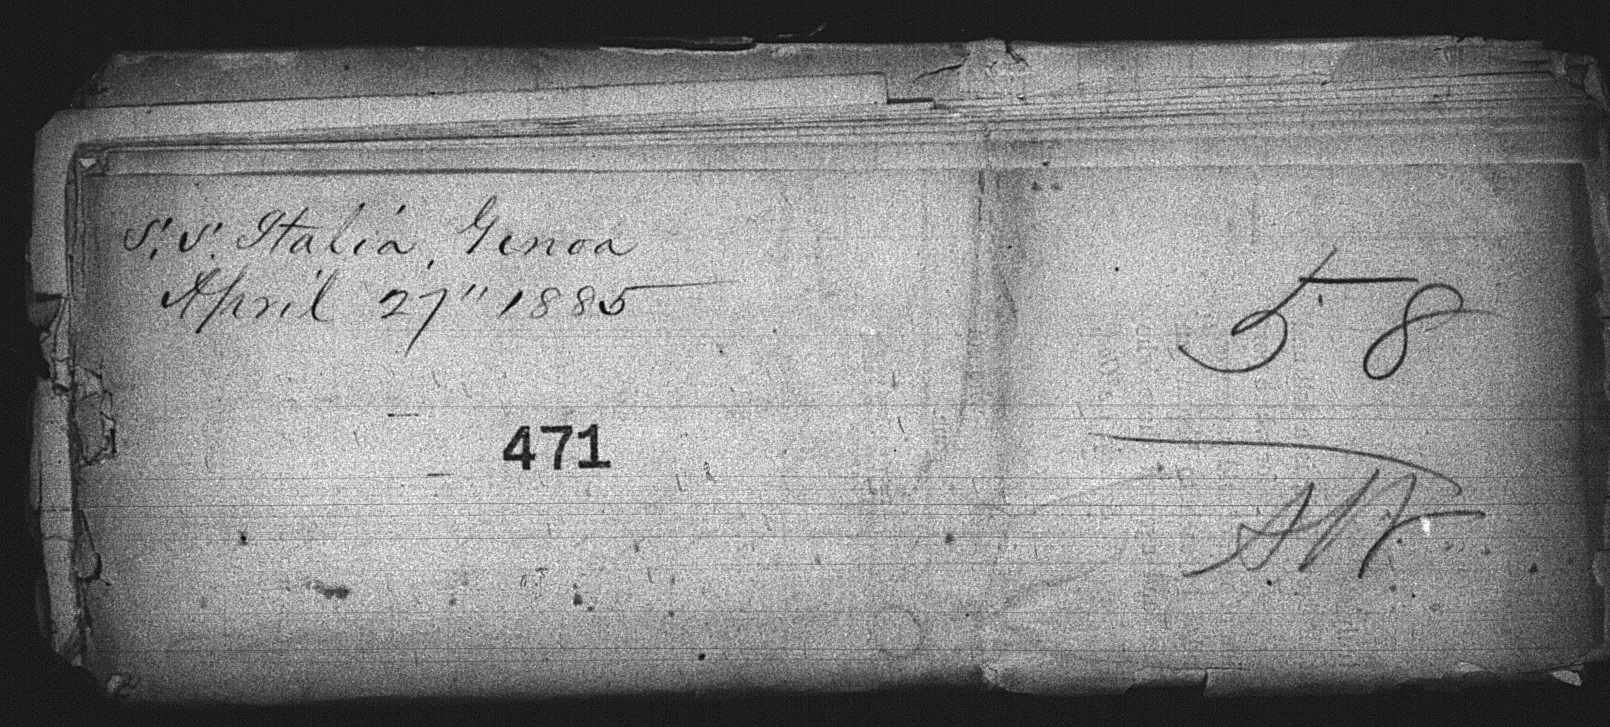 S.S. Italia, Genoa
April 27" 1885
471
58